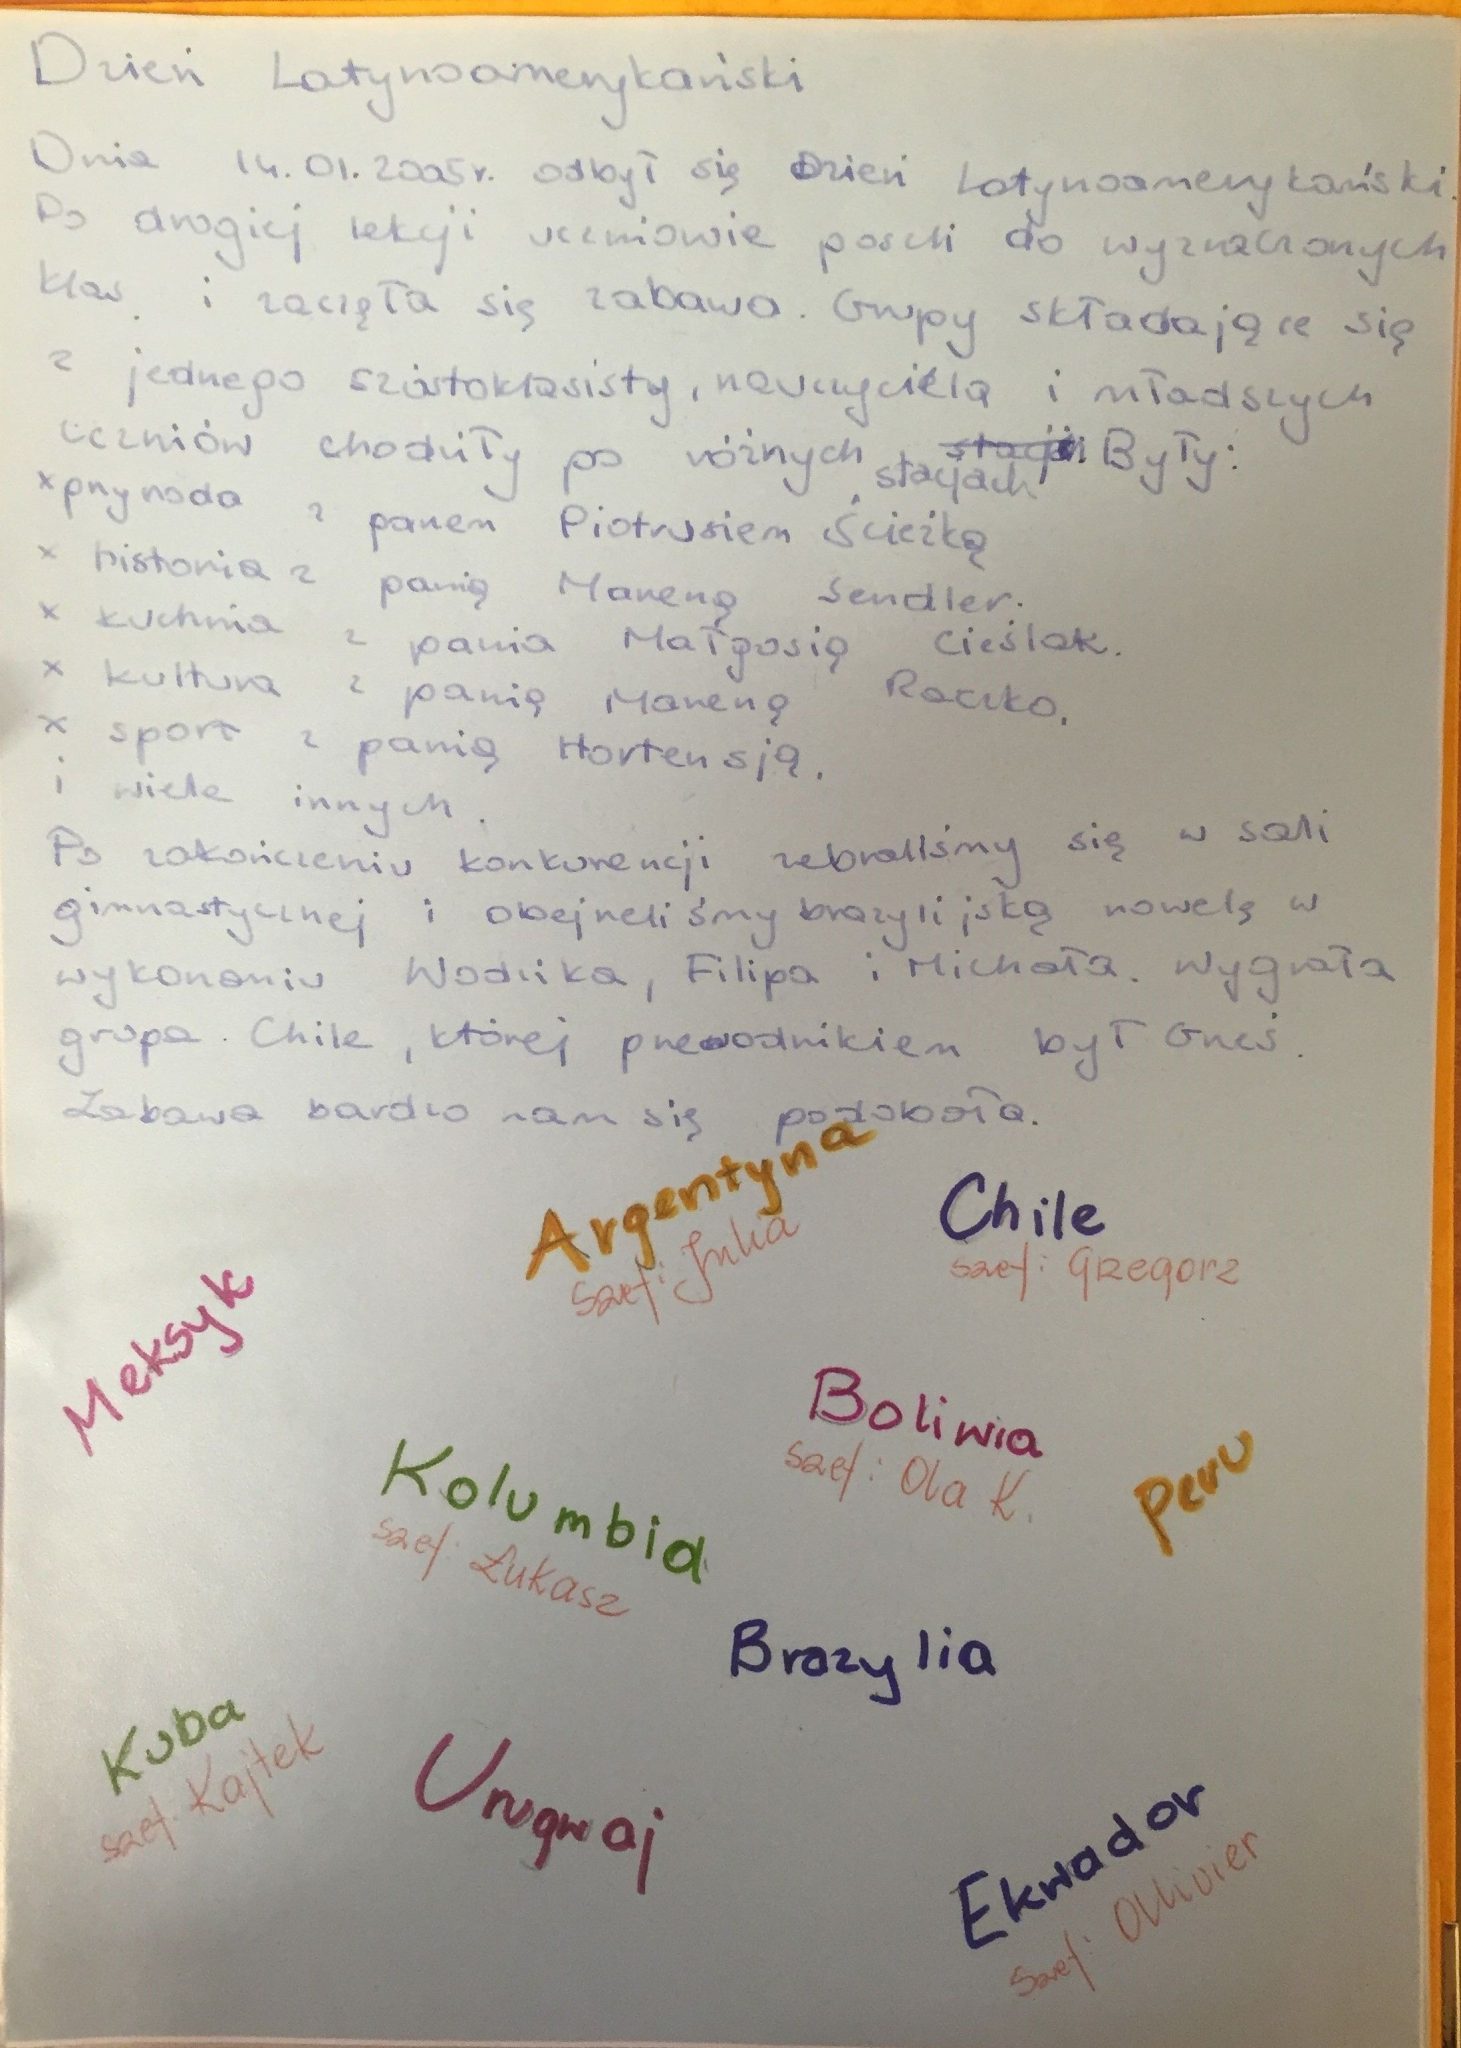 Dzień Latynoamerykański
Dnia 14.01.2005r. odbył się Dzień Latynoamerykański.
Po drugiej lekcji uczniowie poszli do wyznaczonych
klas i zaczęła się zabawa. Grupy składające się
z jednego szóstoklasisty, nauczyciela i młodszych
uczniów chodziły po różnych stacjach. Były:
x przyroda z panem Piotrusiem Ścieżką
x historia z panią Mareną Sendler.
x kuchnia z pania Małgosią Cieślak.
x kultura z panią Mareną Raczko.
x sport z panią Hortensją.
i wiele innych.
Po zakończeniu konkurencji zebraliśmy się w sali
gimnastycznej i obejrzeliśmy brazylijską nowelę w
wykonaniu Wodzika, Filipa i Michała. Wygrała
grupa Chile, której przewodnikiem był Grześ.
Zabawa bardzo nam się podobała.
Argentyna
szef: Julia
Chile
szef: Grzegorz
Meksyk
Boliwia
szef: Ola K.
Peru
Kolumbia
szef: Łukasz
Brazylia
Kuba
szef: Kajtek
Urugwaj
Ekwador
szef: Ollivier